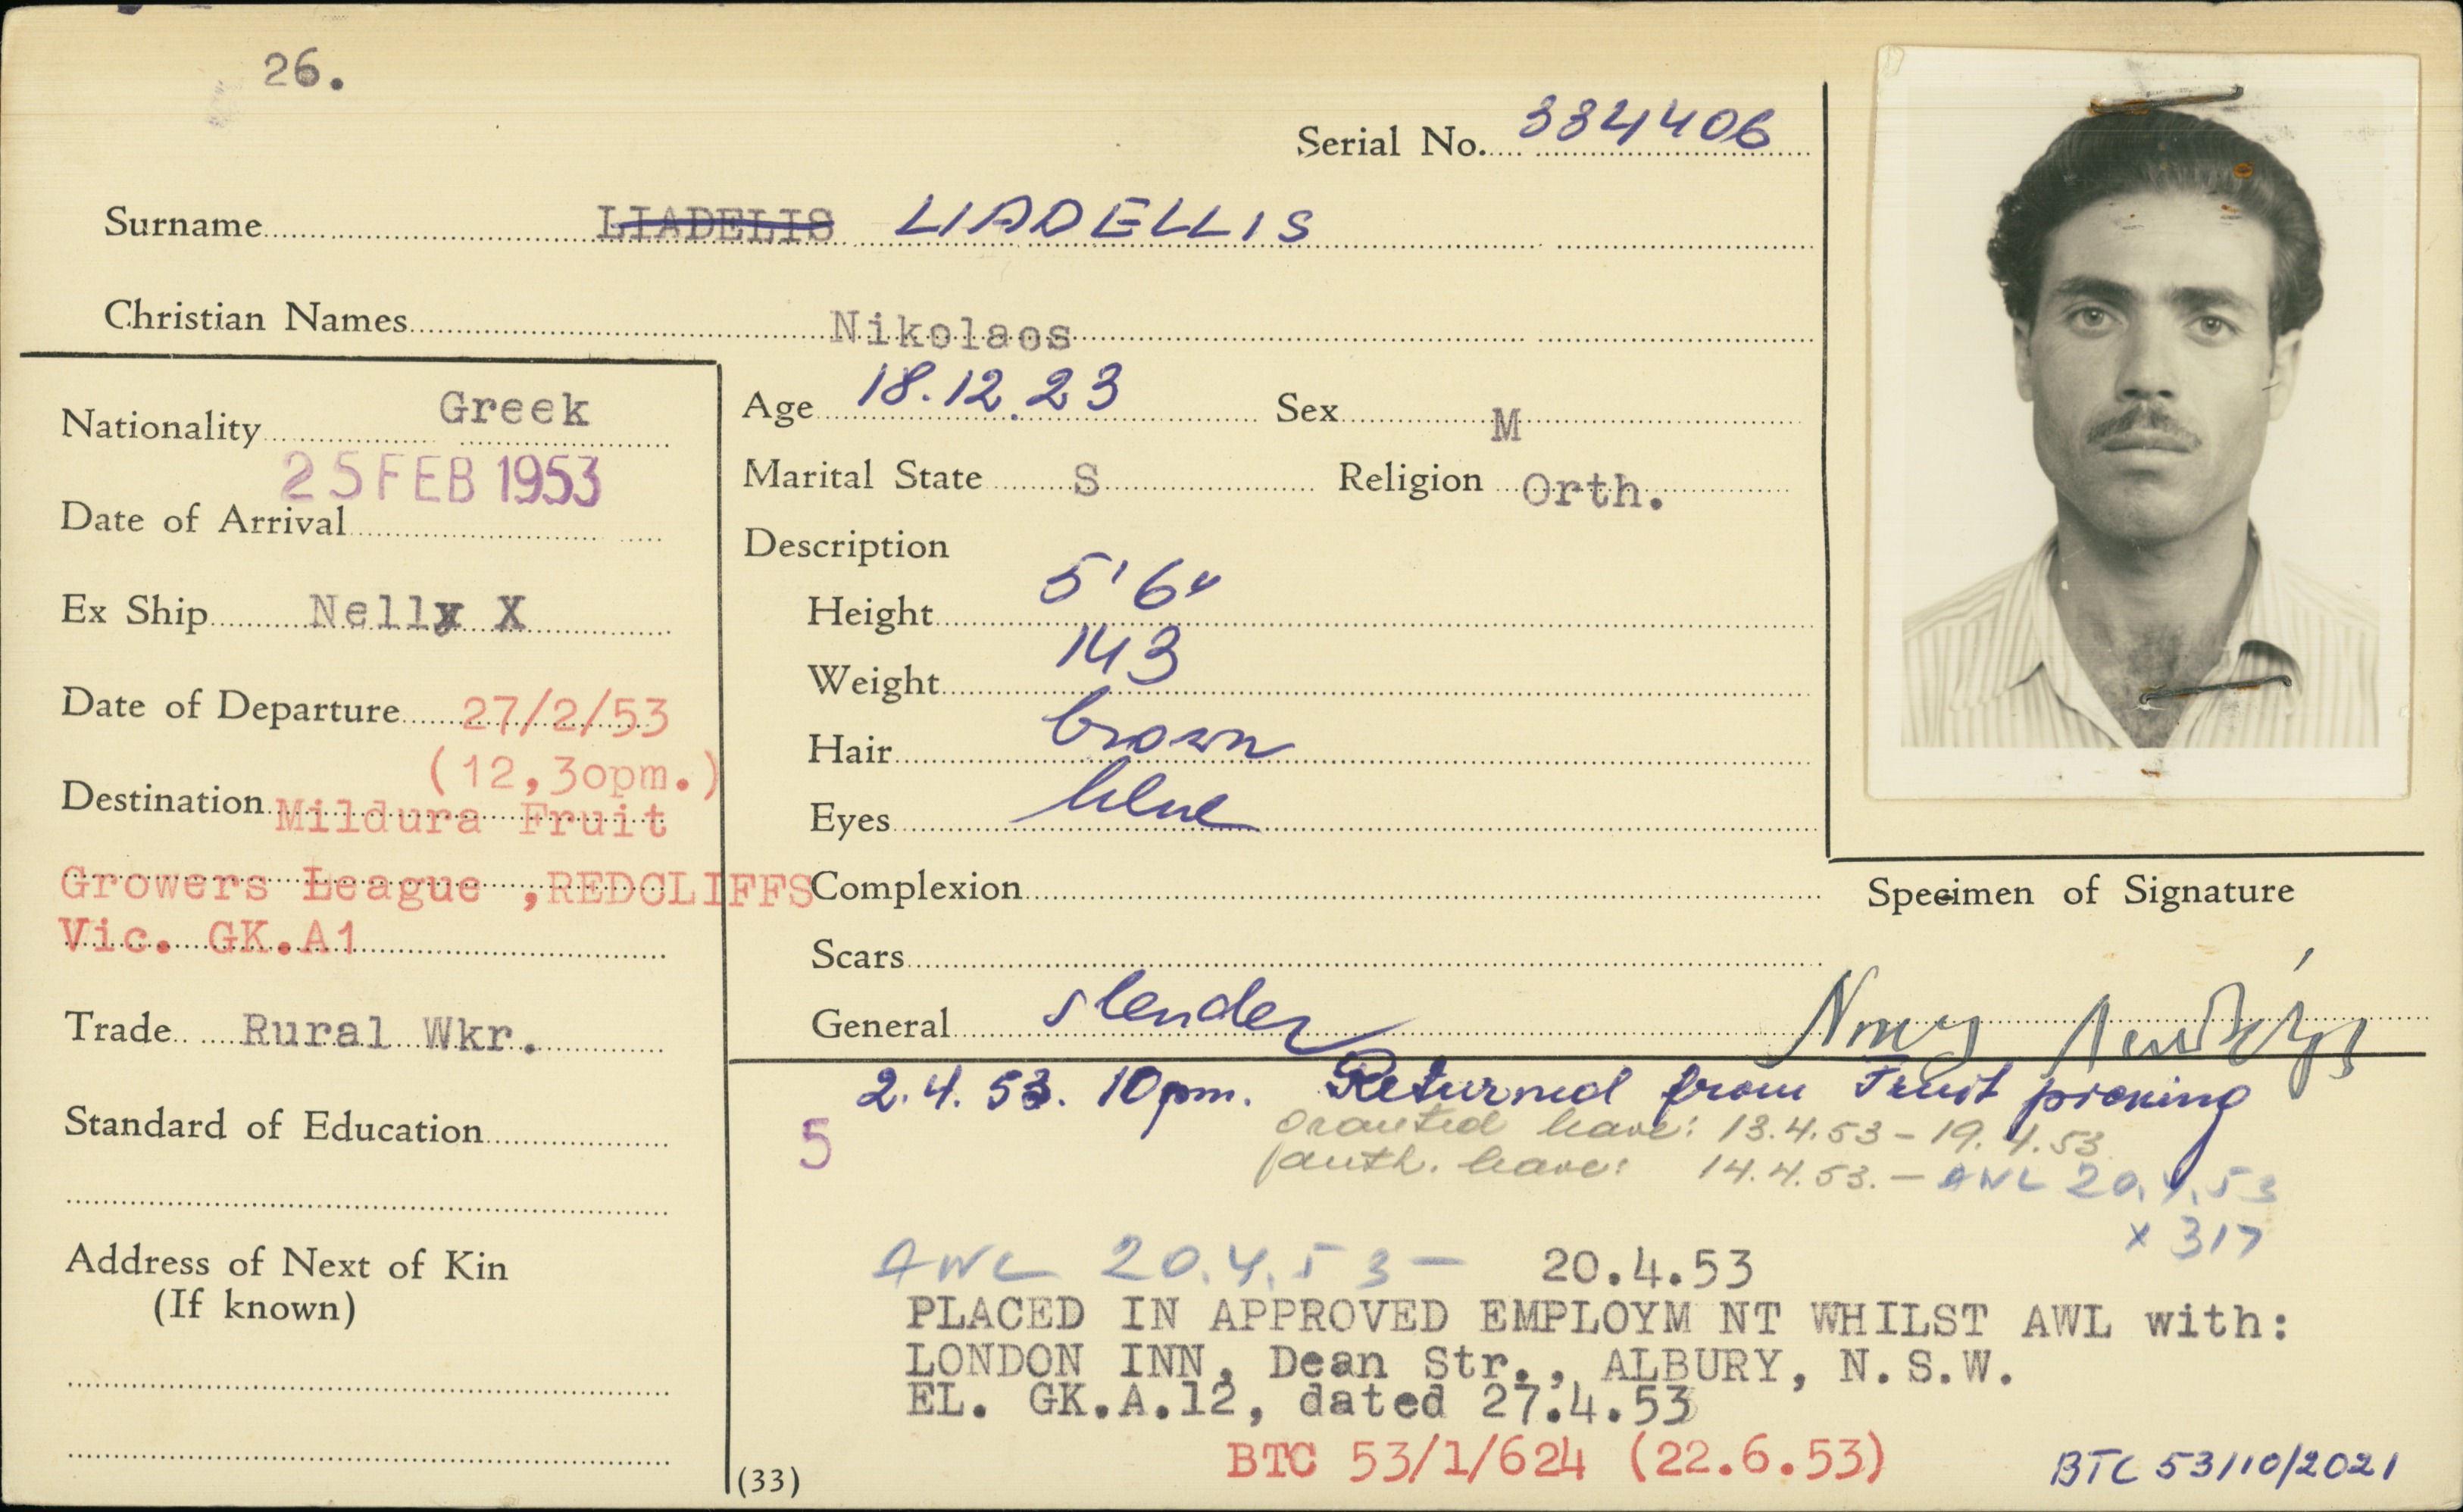 26.
Serial No. 334406
Surname LIADELIS LIADELLIS
Christian Names Nikolaos
Nationality Greek
25 FEB 1953
Date of Arrival
Ex Ship Nelly X
Date of Departure 27/2/53
(12,30pm.)
Destination Mildura Fruit
Growers League ,REDCLIFFS
Vic. GK.A1
Trade Rural Wkr.
Standard of Education
Address of Next of Kin
(If known)
Age 18.12.23 Sex M
Marital State S Religion Orth.
Description
Height 5'6"
Weight 143
Hair brown
Eyes blue
Complexion
Scars
General slender
Specimen of Signature
2.4.53. 10pm. Returned from Fruit picking
5
Granted leave: 13.4.53 - 19.4.53
leave: 14.4.53. - AWL 20.4.53
x 317
AWL 20.4.53 - 20.4.53
PLACED IN APPROVED EMPLOYM NT WHILST AWL with:
LONDON INN, Dean Str., ALBURY, N.S.W.
EL. GK.A.12, dated 27.4.53
BTC 53/1/624 (22.6.53)
BTC 53/10/2021
(33)